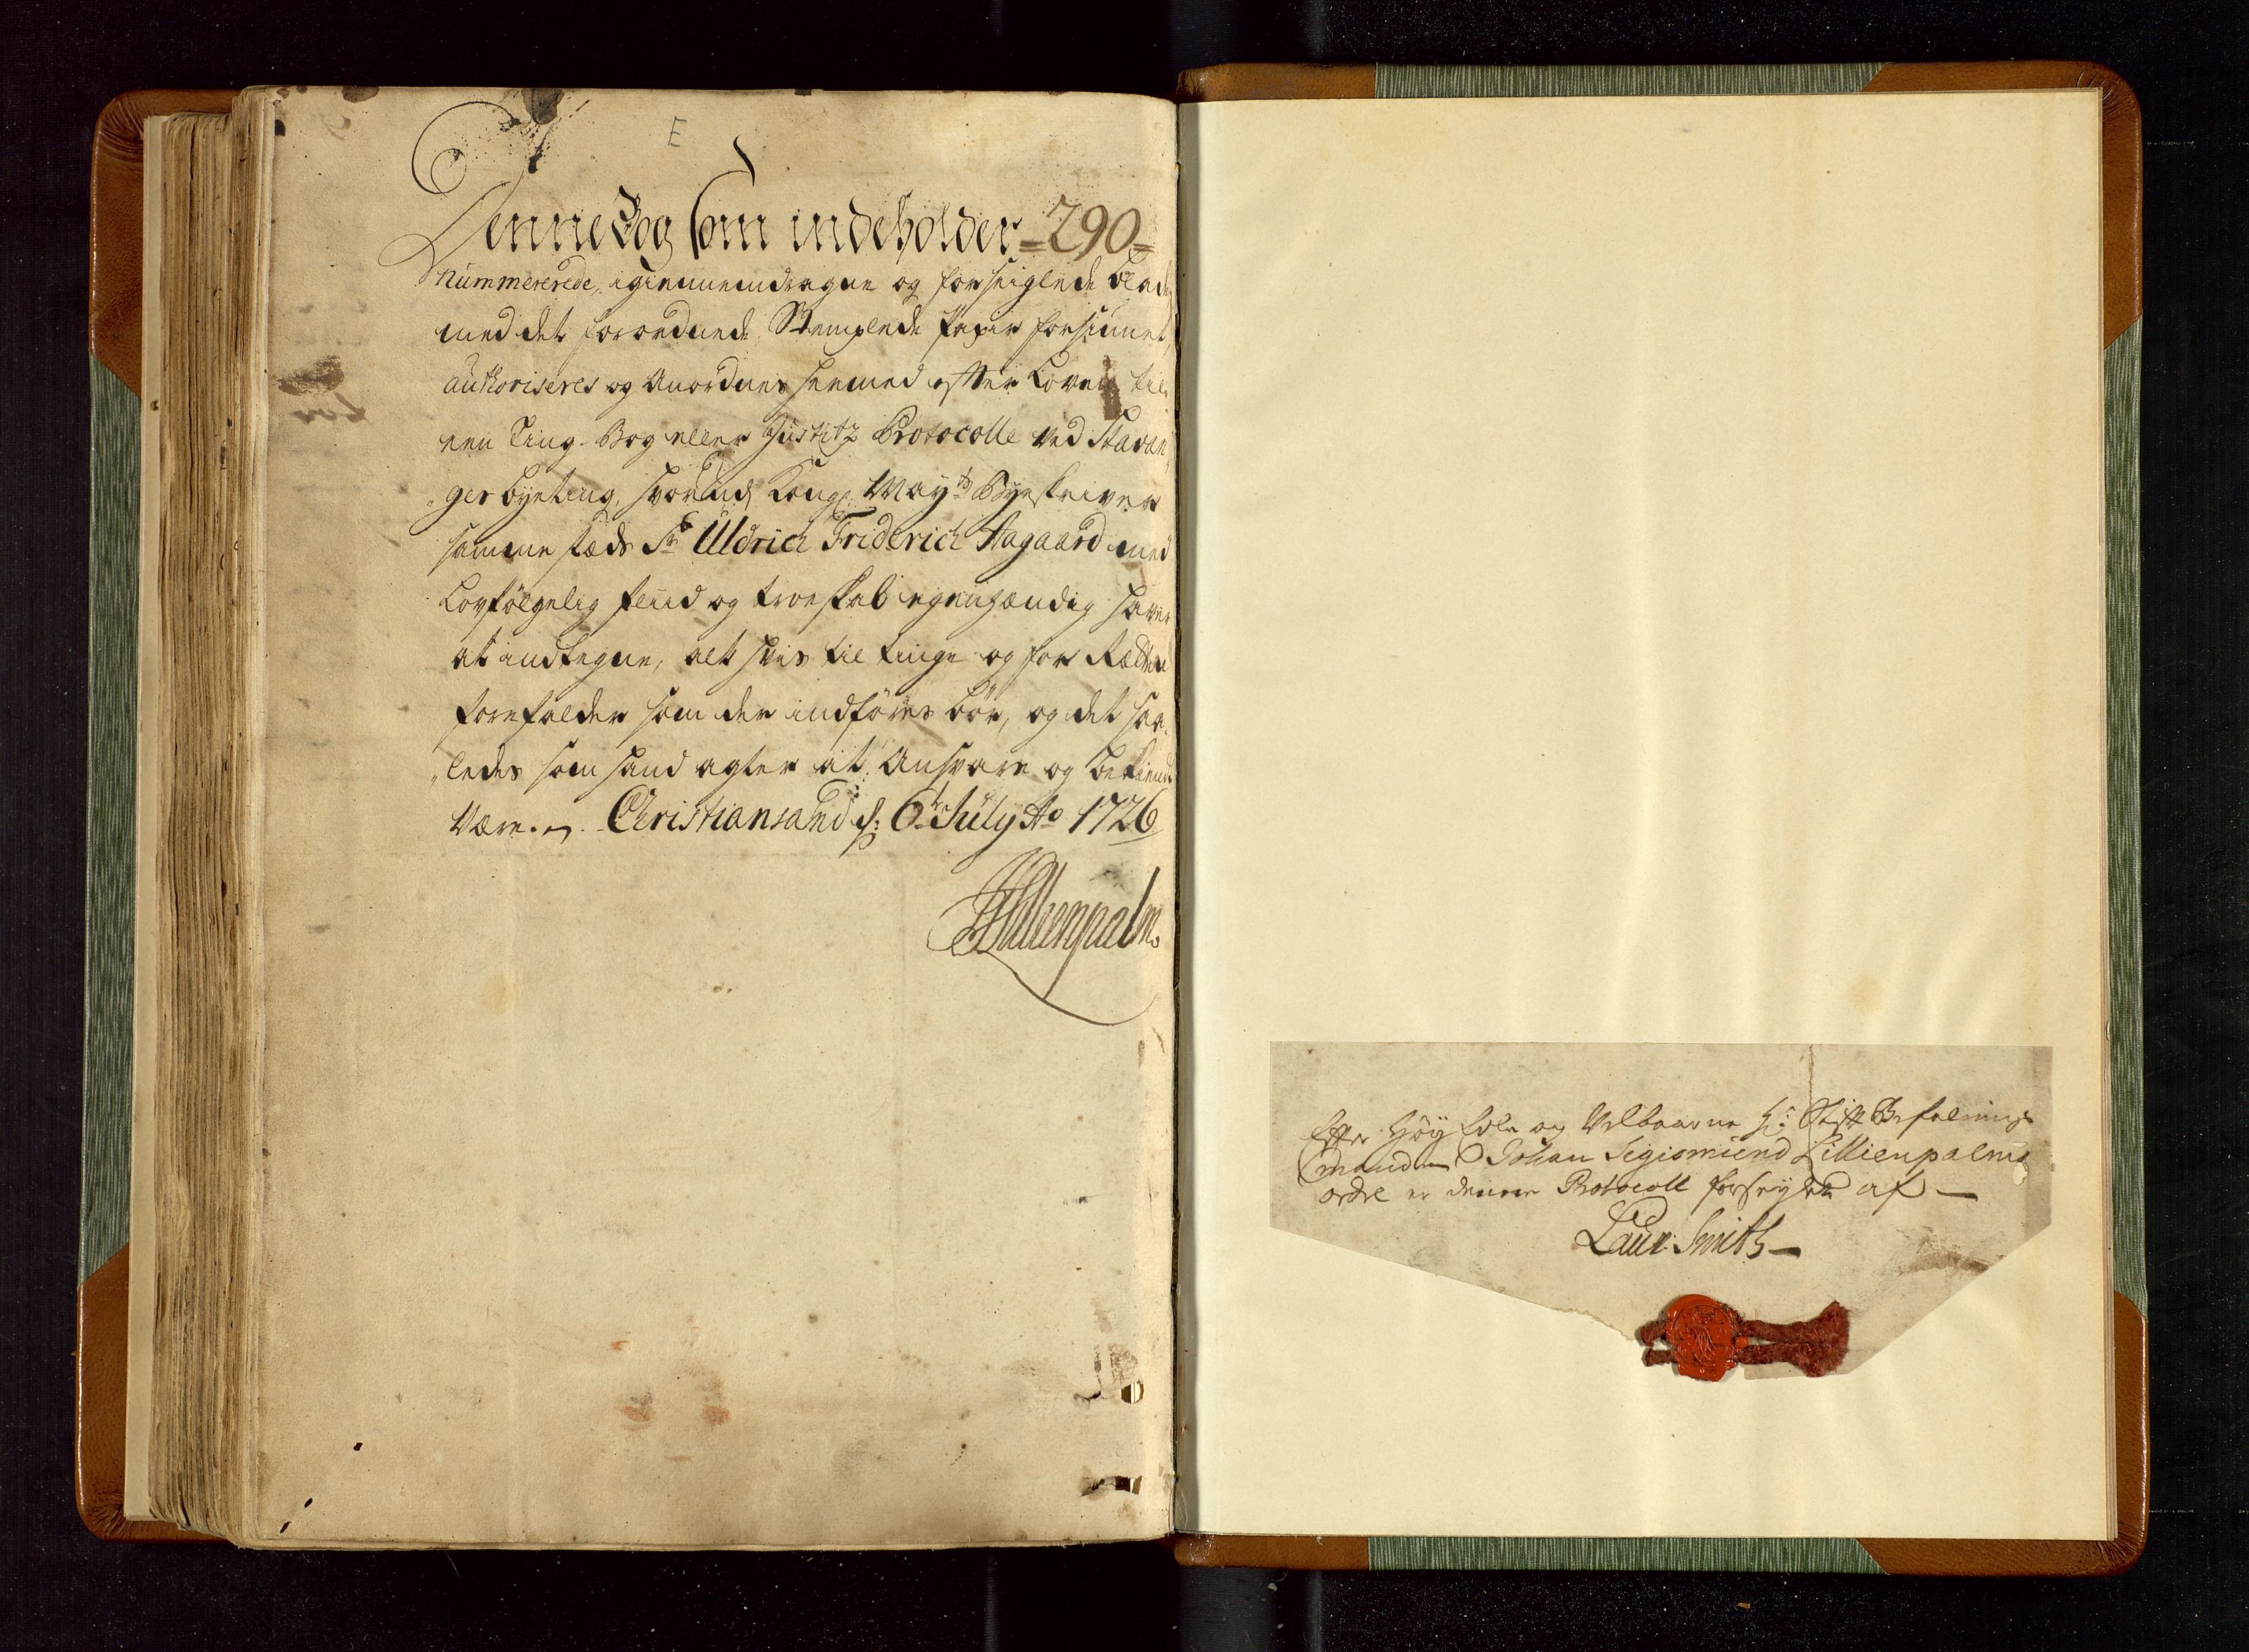 E
Denne Bog som indeholder =290=
Nummererede, igiennemdragne og forseiglede blade,
med det forordnede Stemplede Papir forsiunet,
authoriseres og Anordnes hermed efter Loven til
een Ting-Bog eller Justitz Protocolle ved Stavan-
-ger byeting, hvorud Kongl: Mayts Byeskriver
sammesteds Sr Uldrich Friderich Aagaard med
Lovfölgelig fliid og troeskab egenhændig haver
at indtegne, alt hvis til tinge og for Rætten
forefalder som der indföres bör, og det saa-
-ledes som hand agter at Ansvare og bekiendt
Være. Christiansand d: 6te July Ao 1726
JSLillienpalm.
Efter Høy Edle og Velbaarne Hr: Stift Befalings
manden Johan Sigismund Lillienpalms
ordre er denne Protocoll forseyglet af —
Laur: Smith —